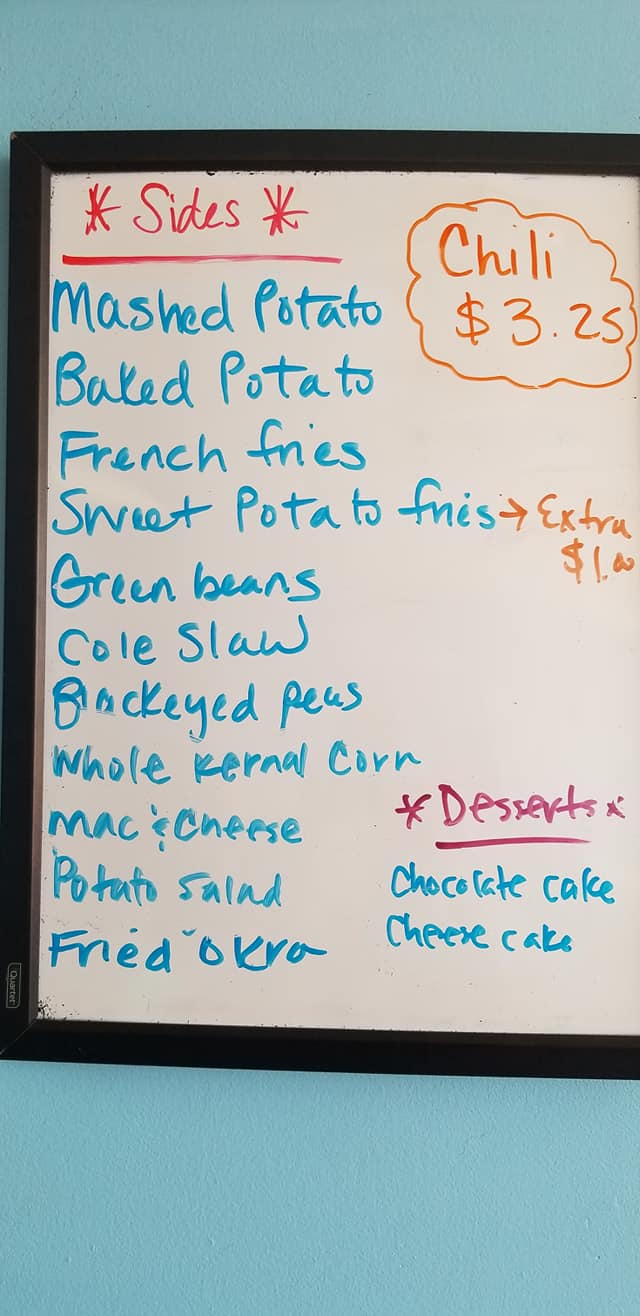 * Sides *
Chili
$3.25
Mashed Potato
Baked Potato
French fries
Sweet Potato fries → Extra
$1.00
Green beans
Cole Slaw
Blackeyed peas
Whole Kernal Corn
Mac & Cheese
Potato Salad
Fried Okra
* Desserts *
Chocolate cake
Cheese cake
Quartet